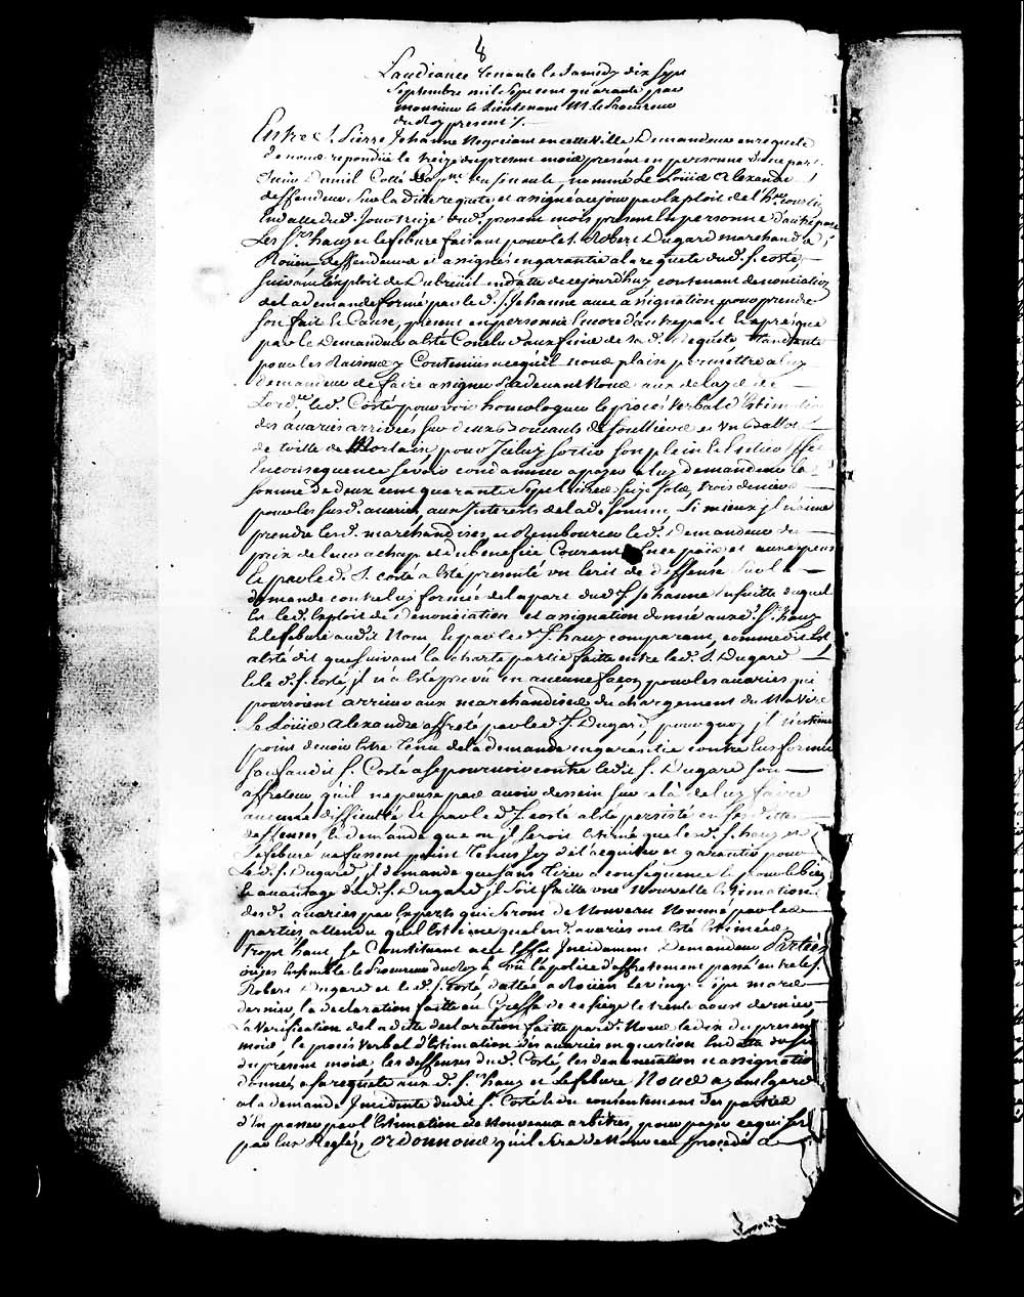 8
Laudiance tenante le Samedy dix sept
Septembre mil sept cent quarante par
monsieur le Lieutenant M. le Procureur
du Roy present /.
Entre s. Pierre Jehanne Negociant en cette Ville Demandeur en requete
de nous repondüe le treize du present mois présent en personne d'une part
nommé Le Louis Alexandre
deffendeur Sur la ditte requete, et assigné a ce jour par Exploit de
En datte dud. jour treize dud. present mois present En personne d'autre part
Les Srs. hauy et lefebure faisant pour le S. Robert Dugard marchand a
Roüen deffendeurs et assignés en garantie a la requete dud. S. costé,
suivant l'exploit de Dubreüil en datte de cejourd'huy contenant denonciation
de la demande formé par le d. S. Jehanne avec assignation pour prendre
son fait et Cause, present en personne Encore d'autre part Et apres que
par le Demandeur a Eté Conclu aux fins de sa d. Requéte tendante
pour les Raisons y Contenües a ce qu'il nous plaise permettre a luy
demandeur de faire assigner pardevant Nous aux delays de
Lord.ce le d. Costé pour voir homologuer le procés verbal d'Estimation
des avaries arrivées sur deux Boucauts de Soulliers et un Ballot
de toille de Morlaix, pour Jceluy sortir son plein Et Entier Effet
En consequence se voir condamner a payer a luy demandeur la
somme de deux cent quarante sept livres seize sols trois deniers
pour les susd. avaries aux Interests de la d. somme, Si mieux jl n'aime
prendre lesd. marchandises, et Rembourser le d. Demandeur du
prix de leur achap et du benefice Courant En ce païs et aux depens
Et par le d. S. costé a Eté presenté un Ecrit de deffense sur la
demande contre luy formée de la part dud. S. Jehanne Ensuitte duquel
Est le d. Exploit de denonciation et assignation donnée auxd. Srs. hauy
Et lefebure aud. Nom Et par le d. S. hauy comparant, comme dit Est
a eté dit que suivant la charte partie faitte entre le d. S. Dugard
Et le d. S. costé, jl n'a Eté prevû en aucune façon pour les avaries qui
pourroient arriver aux marchandises du chargement du Navire
Le Loüis Alexandre affreté par le d. S. Dugard, pourquoy jl n'estime
point devoir Estre tenu de la demande en garantie contre Eux formée
sauf audit S. Costé a se pourvoir contre ledit S. Dugard son
affreteur qu'il ne pense pas avoir dessein sur cela de luy faire
aucune difficulté Et par le d. S. costé a Eté persisté en ses dittes
deffenses, Et demande que ou jl seroit Estimé que lesd. S. hauy et
Lefebure ne fussent point tenus Jcy de l'acquitter et garantir pour
Le d. S. Dugard, jl demande que sans tirer a consequence Et pour le bien
Et avantage dud. S. Dugard jl soit faitte une Nouvelle Estimation
desd. avaries par Experts qui seront de Nouveau Nommé par les
parties attendu qu'il Estime que lesd. avaries ont Eté Estimées
trop haut, se Constituant a cet Effet Jncidament Demandeur Parties
ouyes Ensemble le Procureur du Roy & vû la police d'affretement passé entre le S.
Robert Dugard et le d. S. Costé dattée a Roüen le vingt sept mars
dernier, la declaration faitte au Greffe de ce siege le trente aoust dernier,
La Verification de la ditte declaration faitte pard. Nous le dix du present
mois, le procés Verbal d'Estimation des avaries en question En datte du
du present mois, les deffenses dud. Costé, les denonciation et assignation
donnée a sa requete aux d. Srs. hauy et Lefebure Nous ayant Egard
a la demande Jncidente dudit S. Costé Et du consentement des parties
d'En passer par l'Estimation de Nouveaux arbitres, pour payer ce qui sera
par Eux Reglé, ordonnons qu'il sera de Nouveau procedé a